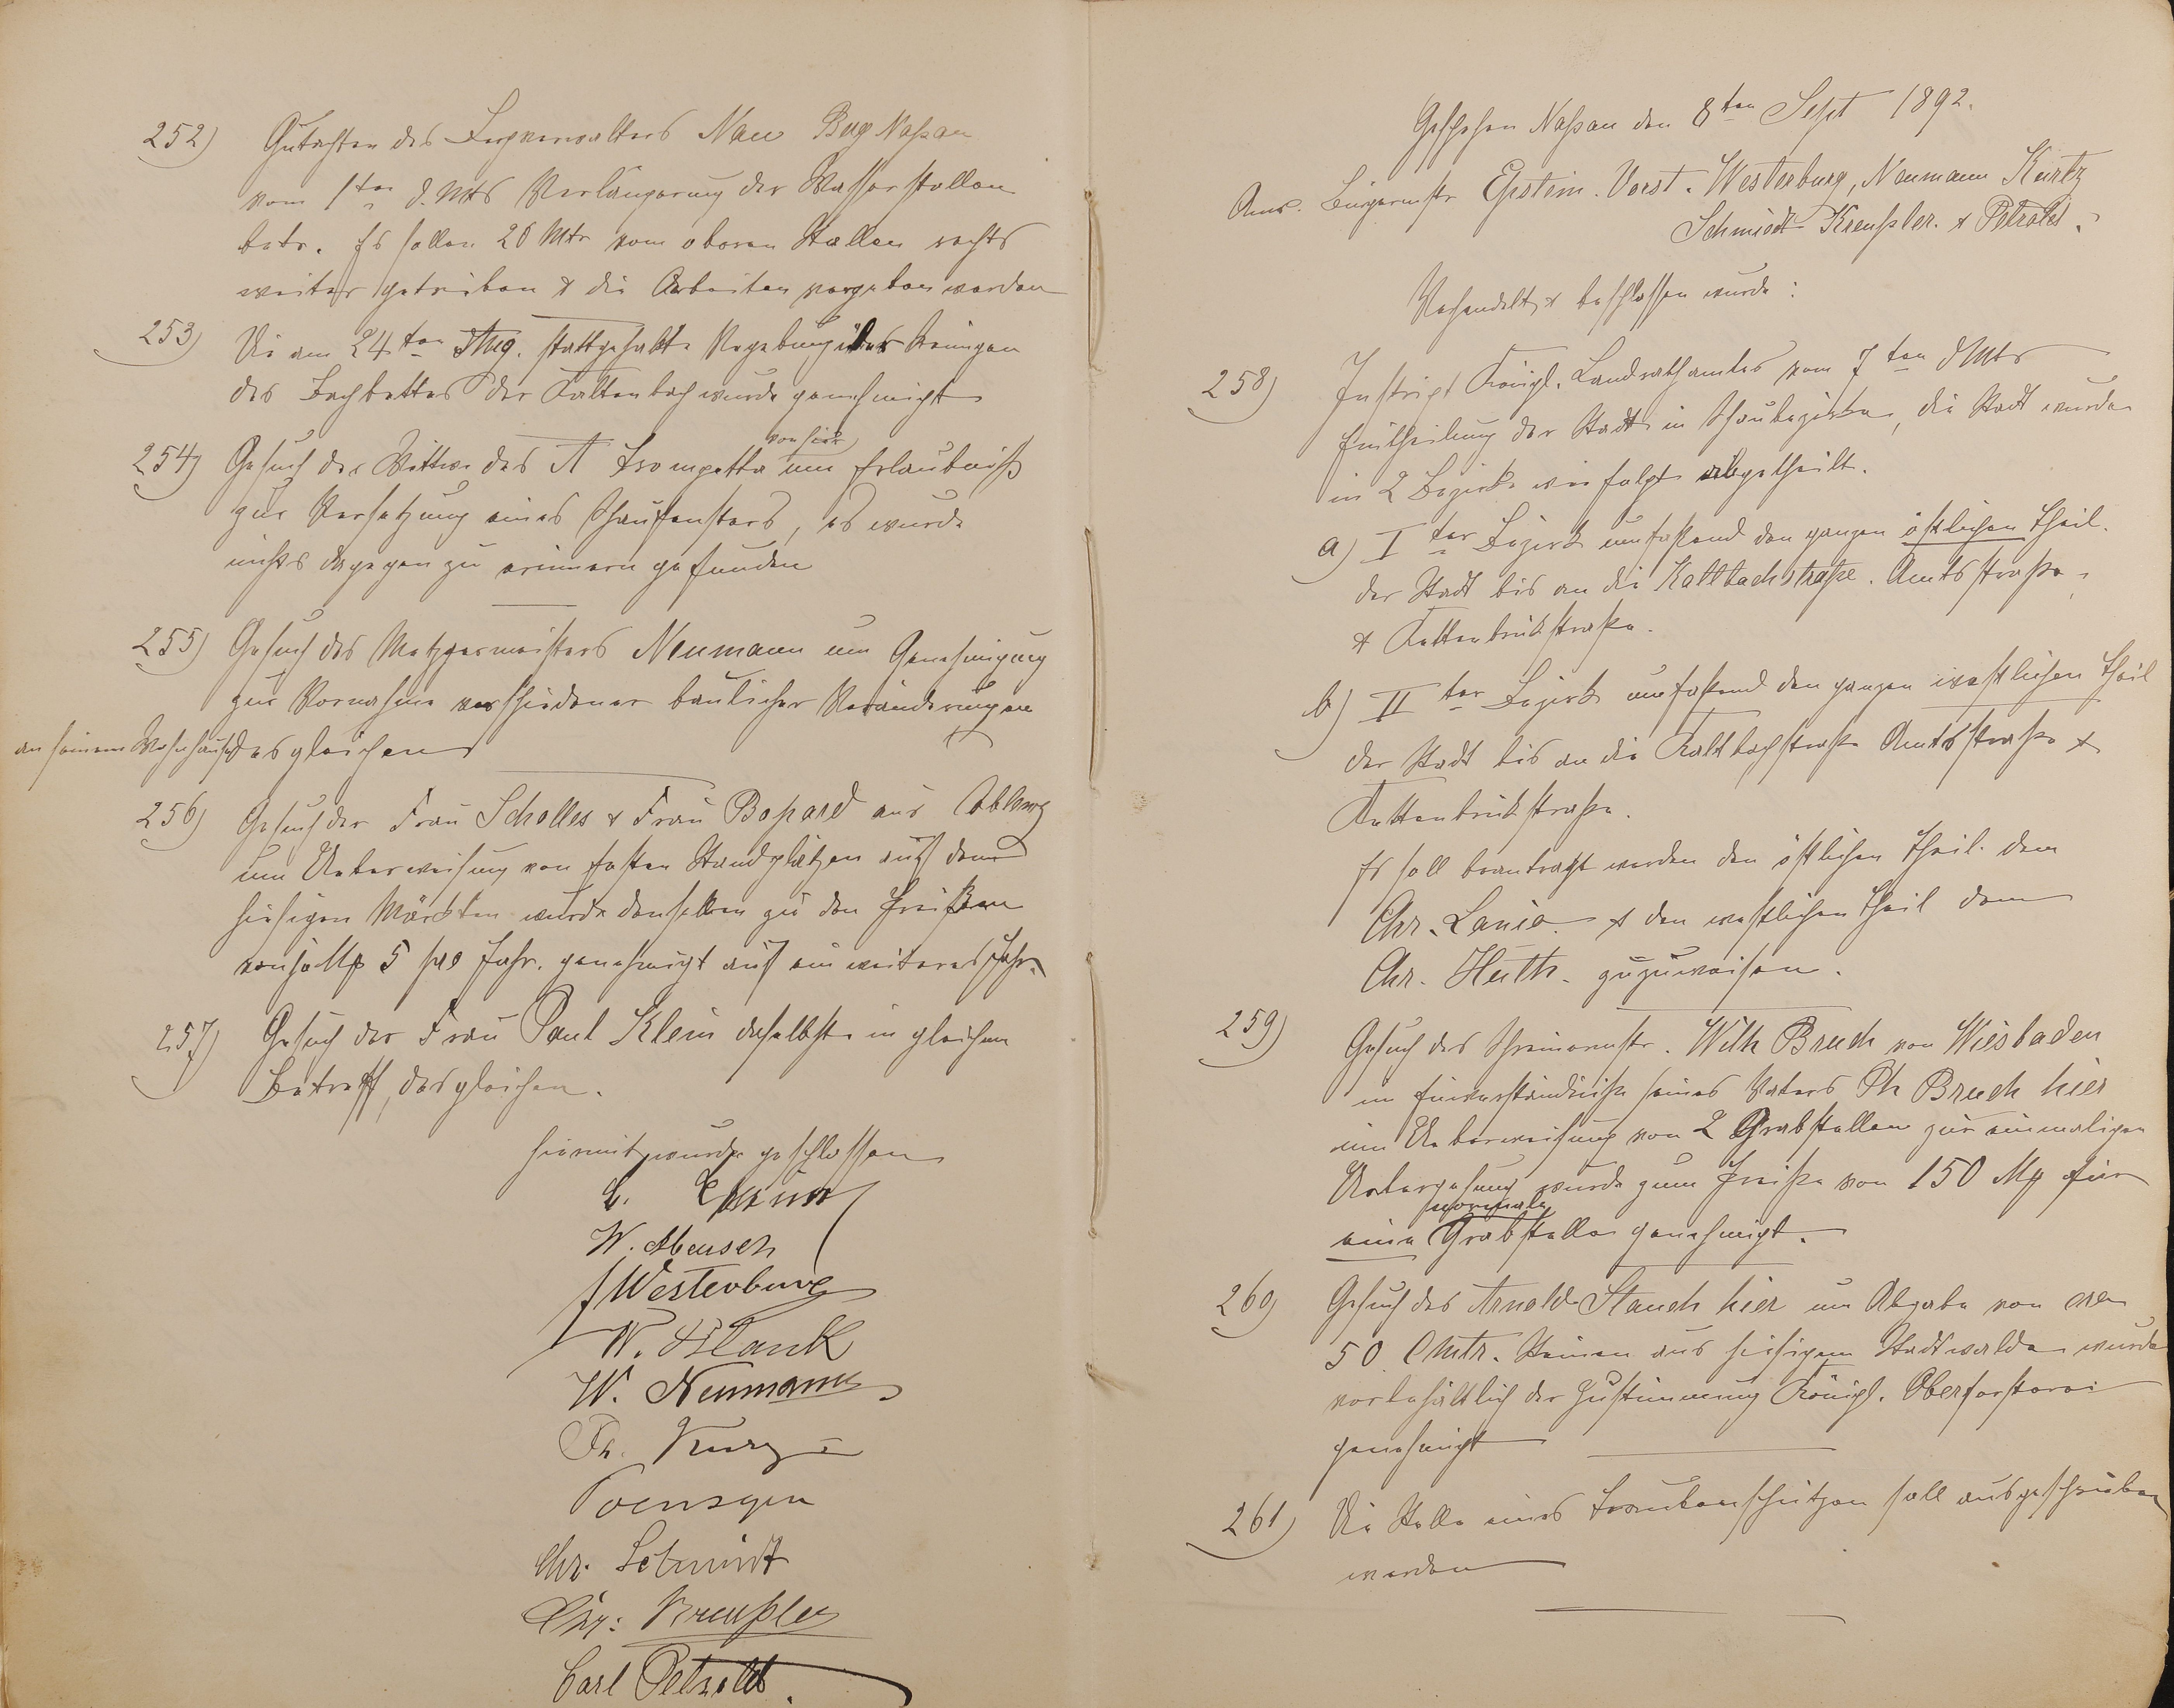 252) Gutachten des Bergverwalters Nau Bug Naßau
vom 1ten d. Mts Verlängerung der Wasserstollen
betr. Es sollen 20 Mtr vom oberen Stollen rechts
weiter getrieben & die Arbeiten vergeben werden
253) Die am 24ten Aug. stattgehabte Vergebung des Reinigen
des Bachbettes der Kaltenbach wurde genehmigt
von hier
254) Gesuch der Wittwe des A Trompetter um Erlaubniß
zur Versetzung eines Schaufensters, es wurde
nichts dagegen zu erinnern gefunden
255) Gesuch des Metzgermeisters Neumann um Genehmigung
zur Vornahme verschiedener baulicher Veränderungen
an seinem Wohnhause desgleichen
256) Gesuch der Frau Scholles & Frau Bopard aus Coblenz
um Ueberweisung von festen Standplätzen auf den
hiesigen Märkten wurde denselben zu den Preißen
von je Mk 5 pro Jahr. genehmigt auf ein weiteres Jahr.
257) Gesuch der Frau Paul Klein daselbst in gleichem
Betreff, desgleichen.
hiermit wurde geschlossen
W. Abensch
J Westerburg
W. Plank
W. Neumann
Ph. Kurz
Poensgen
Chr. Schmidt
Chr: Kreußler
Carl Petzold.
Geschehen Naßau den 8ten Sept 1892.
Anw. Bürgermstr Epstein. Vorst. Westerburg, Neumann Kurtz
Schmidt Kreußler. & Petzold.
Verhandelt & beschlossen wurde:
258) Inskript Königl. Landrathsamtes vom 7ten d Mts
Eintheilung der Stadt in Schaubezirke, die Stadt wurde
in 2 Bezirke wie folgt abgetheilt.
a) Iter Bezirk umfaßend den ganzen östlichen Theil.
der Stadt bis an die Kaltbachstraße. Amtsstraße,
& Kettenbrückstraße.
b) IIter Bezirk umfaßend den ganzen westlichen Theil
der Stadt bis an die Kaltbachstraße Amtsstraße &
Kettenbrückstraße.
Es soll beantragt werden den östlichen Theil. dem
Chr. Lanio. & den westlichen Theil dem
Chr. Huth. zuzuweisen.
259) Gesuch des Schreinermstr. Wilh Bruch von Wiesbaden
im Einverständniße seines Vaters Ph Bruch hier
um Ueberweisung von 2 Grabstellen zur einmaligen
wurde zum Preiße von 150 Mk für
normale
eine Grabstelle genehmigt.
260) Gesuch des Arnold Stauch hier um Abgabe von
50 Cbmtr. Steinen aus hiesigem Stadtwalde wurde
vorbehältlich der Zustimmung Königl. Oberförsterei
genehmigt
261) Die Stelle eines Traubenschützen soll ausgeschrieben
werden